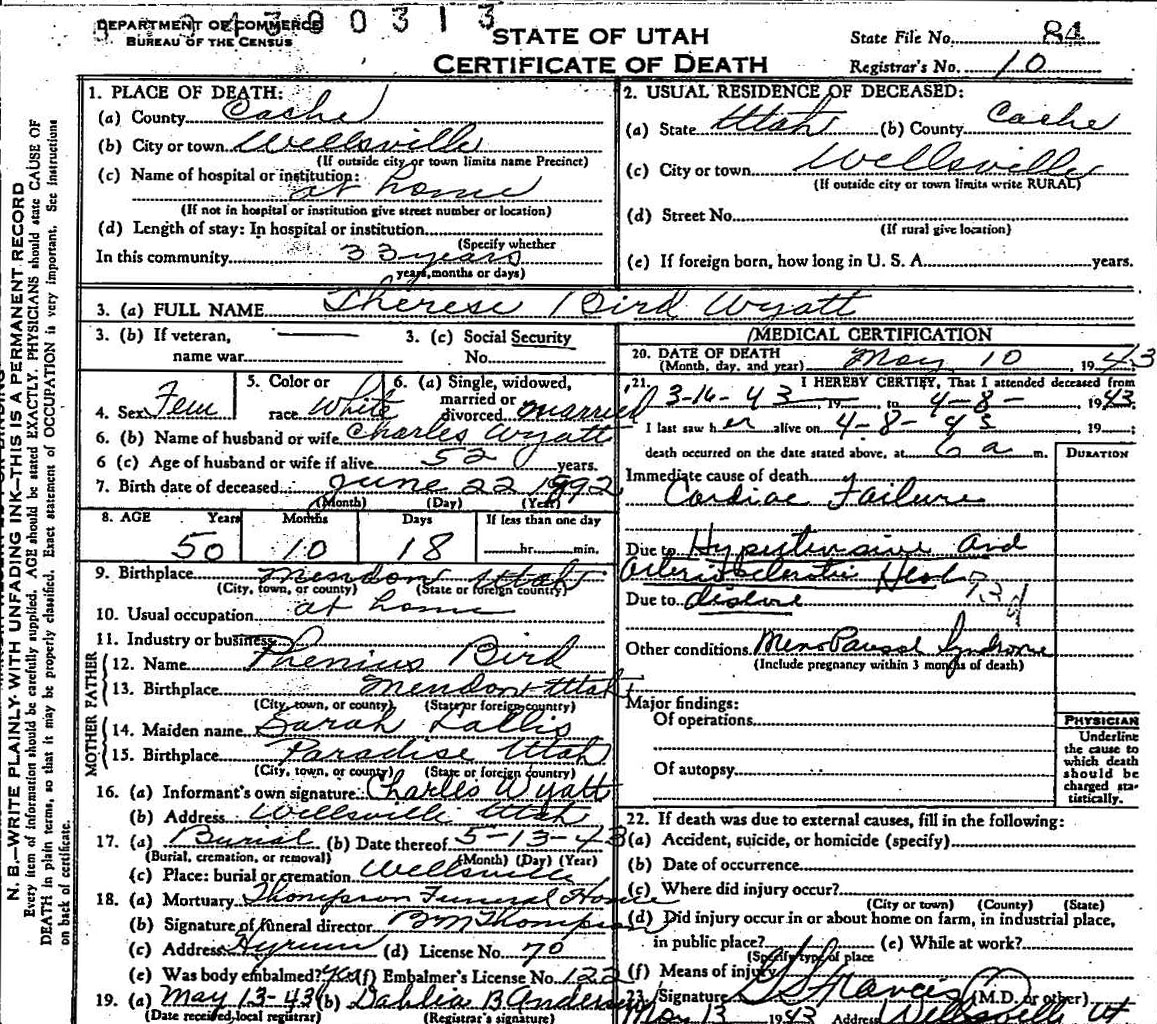 DEPARTMENT OF COMMERCE
BUREAU OF THE CENSUS
STATE OF UTAH
CERTIFICATE OF DEATH
State File No. 84
Registrar's No. 10
N. B.—WRITE PLAINLY WITH UNFADING INK—THIS IS A PERMANENT RECORD
Every item of information should be carefully supplied. AGE should be stated EXACTLY. PHYSICIANS should state CAUSE OF
DEATH in plain terms, so that it may be properly classified. Exact statement of OCCUPATION is very important. See instructions
on back of certificate.
1. PLACE OF DEATH:
(a) County Cache
(b) City or town Wellsville
(If outside city or town limits name Precinct)
(c) Name of hospital or institution:
at home
(If not in hospital or institution give street number or location)
(d) Length of stay: In hospital or institution
(Specify whether
In this community 33 years
years, months or days)
2. USUAL RESIDENCE OF DECEASED:
(a) State Utah (b) County Cache
(c) City or town Wellsville
(If outside city or town limits write RURAL)
(d) Street No.
(If rural give location)
(e) If foreign born, how long in U. S. A. years.
3. (a) FULL NAME Therese Bird Wyatt
3. (b) If veteran,
name war
3. (c) Social Security
No.
4. Sex Fem
5. Color or
race White
6. (a) Single, widowed,
married or
divorced married
6. (b) Name of husband or wife Charles Wyatt
6 (c) Age of husband or wife if alive 52 years.
7. Birth date of deceased June 22 1892
(Month) (Day) (Year)
8. AGE Years Months Days If less than one day
50 10 18 hr. min.
9. Birthplace Mendon Utah
(City, town, or county) (State or foreign country)
10. Usual occupation at home
11. Industry or business
FATHER
12. Name Phenius Bird
13. Birthplace Mendon Utah
(City, town, or county) (State or foreign country)
MOTHER
14. Maiden name Sarah Lallis
15. Birthplace Paradise Utah
(City, town, or county) (State or foreign country)
16. (a) Informant's own signature Charles Wyatt
(b) Address Wellsville Utah
17. (a) Burial (b) Date thereof 5-13-43
(Burial, cremation, or removal) (Month) (Day) (Year)
(c) Place: burial or cremation Wellsville
18. (a) Mortuary Thompson Funeral Home
(b) Signature of funeral director BM Thompson
(c) Address Hyrum (d) License No. 70
(e) Was body embalmed? yes (f) Embalmer's License No. 122
19. (a) May 13-43 (b) Dahlia B Anderson
(Date received local registrar) (Registrar's signature)
MEDICAL CERTIFICATION
20. DATE OF DEATH
(Month, day, and year) May 10, 1943
21. I HEREBY CERTIFY, That I attended deceased from
3-16-43 19 to 4-8- 1943
I last saw her alive on 4-8-43, 19 ;
death occurred on the date stated above, at 6 a m.
DURATION
Immediate cause of death
Cardiac Failure
Due to Hypertensive and
Arteriosclerotic Heart
Due to disease
Other conditions MenoPausal Syndrome
(Include pregnancy within 3 months of death)
Major findings:
Of operations
Of autopsy
PHYSICIAN
Underline
the cause to
which death
should be
charged sta-
tistically.
22. If death was due to external causes, fill in the following:
(a) Accident, suicide, or homicide (specify)
(b) Date of occurrence
(c) Where did injury occur?
(City or town) (County) (State)
(d) Did injury occur in or about home on farm, in industrial place,
in public place? (e) While at work?
(Specify type of place
(f) Means of injury
23. Signature (M.D. or other)
May 13 1943 Address Wellsville Ut